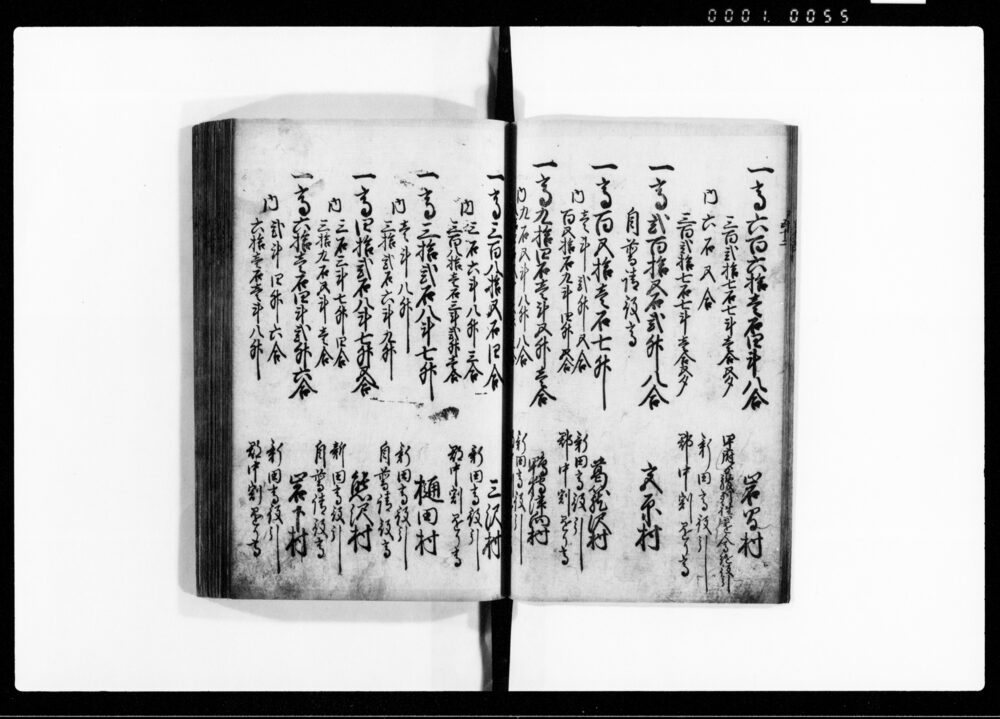 0001.0055
一高六百六拾壱石四斗八合　岩間村
三百弐拾七石七斗壱合五夕
内　六石五合　新田高役引
三百弐拾七石七斗壱合五夕　郡中割
一高弐百拾五石弐升八合　文原村
自普請役高
一高百五拾壱石七升　葛籠沢村
内　壱斗弐升五合　新田高役引
百五拾石九斗四升五合　郡中割
一高九拾四石壱斗五升壱合
内　九石五斗八升八合　新田高役引
一高三百八拾五石四合　三沢村
内　三石六斗八升三合　新田高役引
三百八拾壱石三斗弐升壱合　郡中割
一高三拾弐石八斗七升　樋田村
内　壱斗八升　新田高役引
三拾弐石六斗九升　自普請役高
一高四拾弐石八斗七升五合　熊沢村
内　三石三斗七升四合　新田高役引
三拾九石五斗壱合　自普請役高
一高六拾壱石四斗弐升六合　岩下村
内　弐斗四升六合　新田高役引
六拾壱石壱斗八升　郡中割